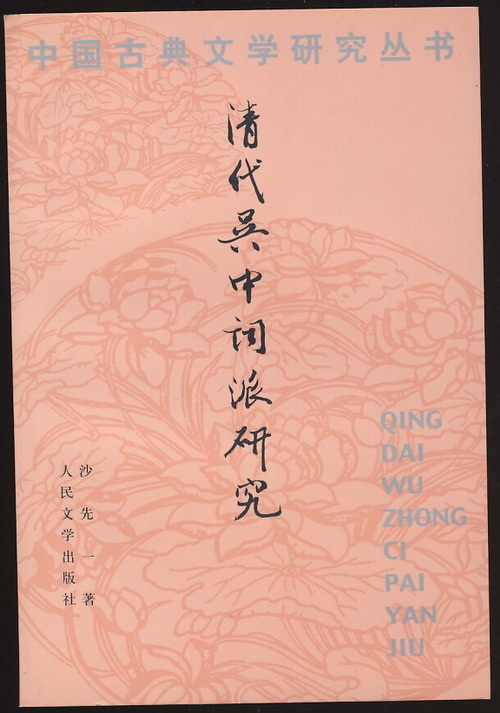 中国古典文学研究丛书
清代吴中词派研究
QING
DAI
WU
ZHONG
CI
PAI
YAN
JIU
沙先一 著
人民文学出版社